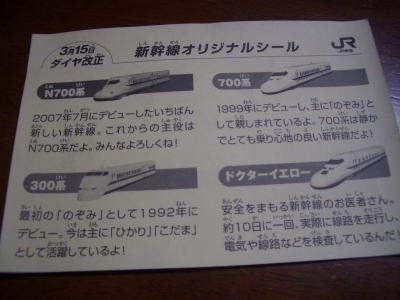 3月15日
ダイヤ改正
新幹線オリジナルシール
JR
N700系
2007年7月にデビューしたいちばん
新しい新幹線。これからの主役は
N700系だよ。みんなよろしくね!
700系
1999年にデビューし、主に「のぞみ」と
して親しまれているよ。700系は静か
でとても乗り心地の良い新幹線だよ!
300系
最初の「のぞみ」として1992年に
デビュー。今は主に「ひかり」「こだま」
として活躍しているよ!
ドクターイエロー
安全をまもる新幹線のお医者さん。
約10日に一回、実際に線路を走行し、
電気や線路などを検査しているんだ